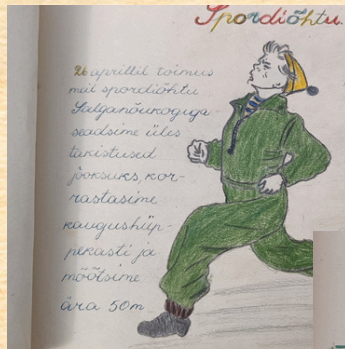 Spordiõhtu.
26 aprillil toimus
meil spordiõhtu
Salganõukoguga
seadsime üles
takistused
jooksuks, kor-
rastasime
kaugushüp-
pekasti ja
mõõtsime
ära 50m